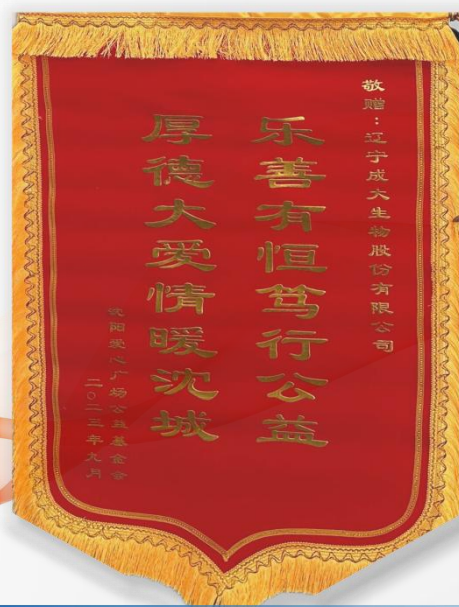 敬赠：辽宁成大生物股份有限公司
乐善有恒笃行公益
厚德大爱情暖沈城
沈阳爱心广场公益基金会
二〇二三年九月